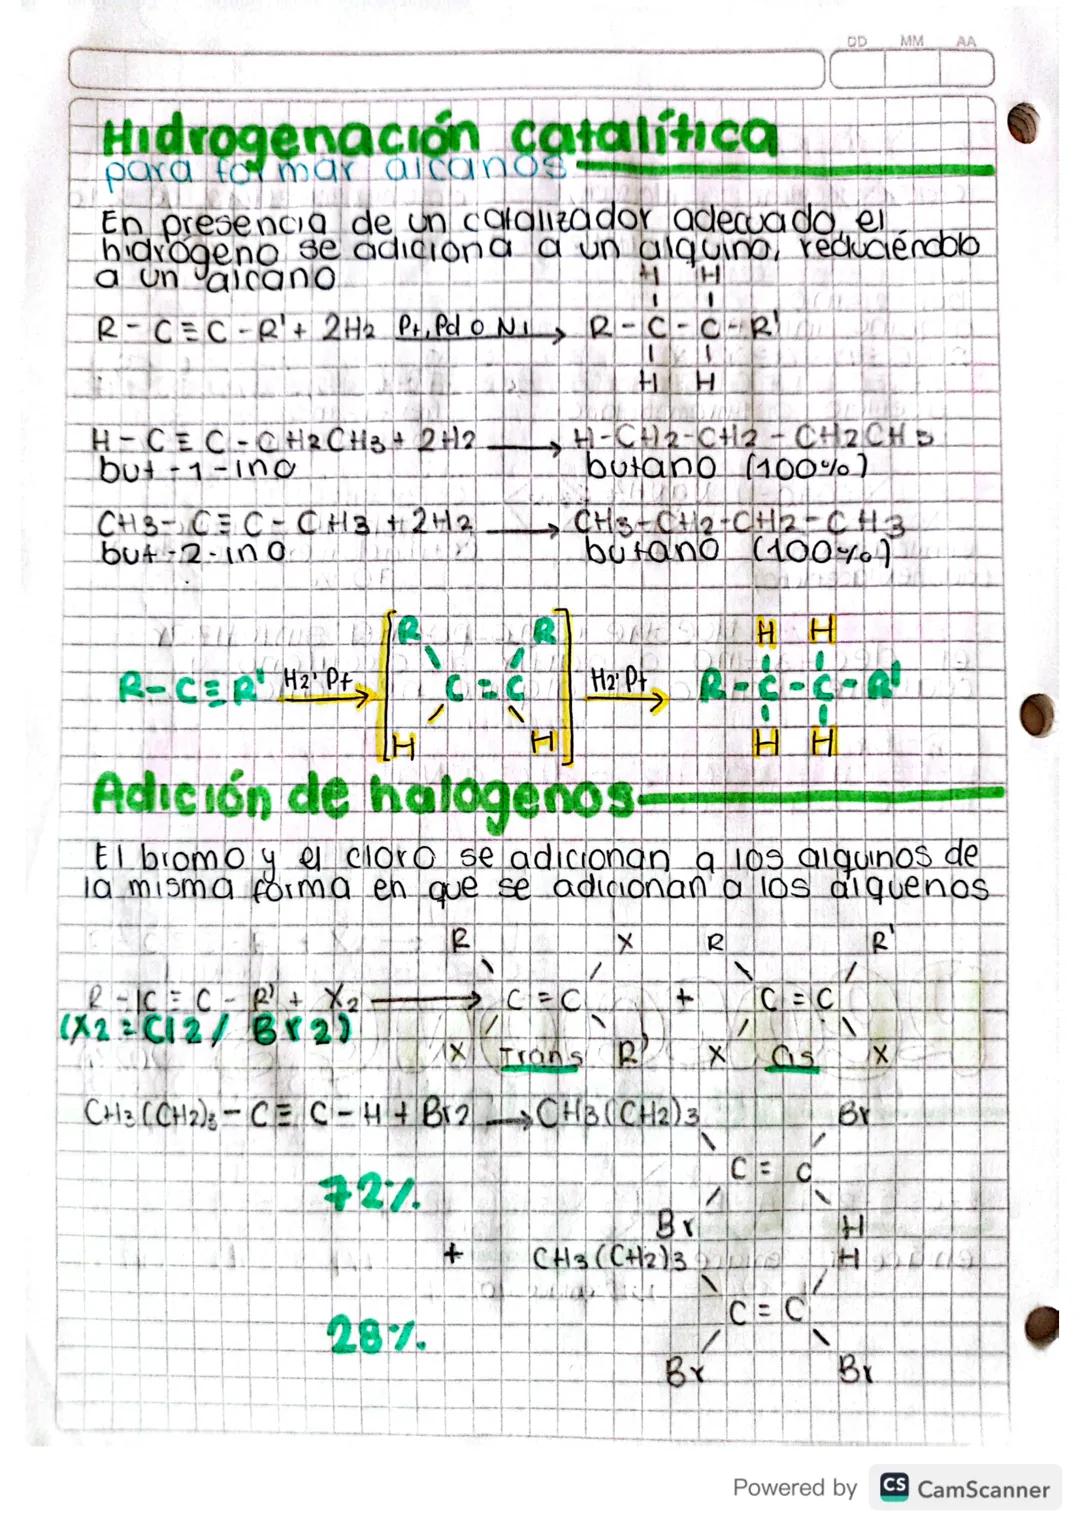 DD MM AA
Hidrogenación catalítica
para formar alcanos
En presencia de un catalizador adecuado, el
hidrógeno se adiciona a un alquino, reduciéndolo
a un alcano
H H
R - C ≡ C - R' + 2H2 Pt, Pd o Ni → R - C - C - R'
H H
H - C ≡ C - CH2CH3 + 2H2 → H-CH2-CH2 - CH2CH3
but-1-ino butano (100%)
CH3- C ≡ C - CH3 + 2H2 → CH3-CH2-CH2-CH3
but-2-ino butano (100%)
R R H H
R-C≡R' H2, Pt → C = C H2, Pt → R-C-C-R'
H H H H
Adición de halogenos
El bromo y el cloro se adicionan a los alquinos de
la misma forma en que se adicionan a los alquenos
R X R R'
R - C ≡ C - R' + X2 → C = C + C = C
(X2 = Cl2/ Br2)
X Trans R' X Cis X
CH3(CH2)3 - C ≡ C - H + Br2 → CH3(CH2)3 Br
C = C
72%
Br H
+ CH3(CH2)3 H
C = C
28%
Br Br
Powered by CS CamScanner